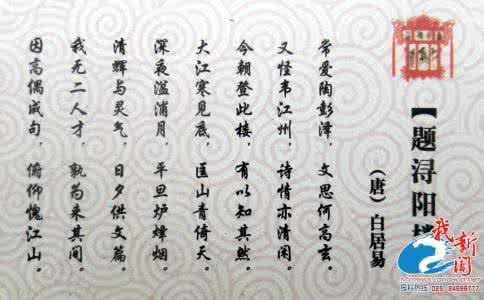 【题浔阳楼
(唐)白居易
常爱陶彭泽,文思何高玄。
又怪韦江州,诗情亦清闲。
今朝登此楼,有以知其然。
大江寒见底,匡山青倚天。
深夜湓浦月,平旦炉峰烟。
清辉与灵气,日夕供文篇。
我无二人才,孰为来其间。
因高偶成句,俯仰愧江山。
我新闻